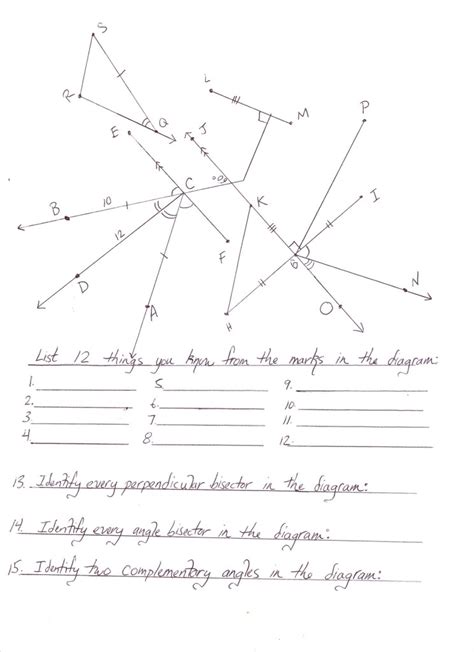 S
L
R
Q
M
P
E
J
C
I
10
K
B
12
F
G
N
D
A
H
O
List 12 things you know from the marks in the diagram:
1. 5. 9.
2. 6. 10.
3. 7. 11.
4. 8. 12.
13. Identify every perpendicular bisector in the diagram:
14. Identify every angle bisector in the diagram:
15. Identify two complementary angles in the diagram: